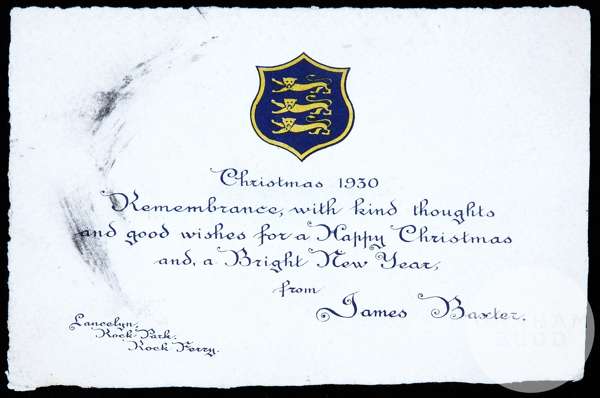 Christmas 1930
Remembrance, with kind thoughts
and good wishes for a Happy Christmas
and, a Bright New Year,
from
James Baxter.
Lancelyn,
Rock Park,
Rock Ferry.